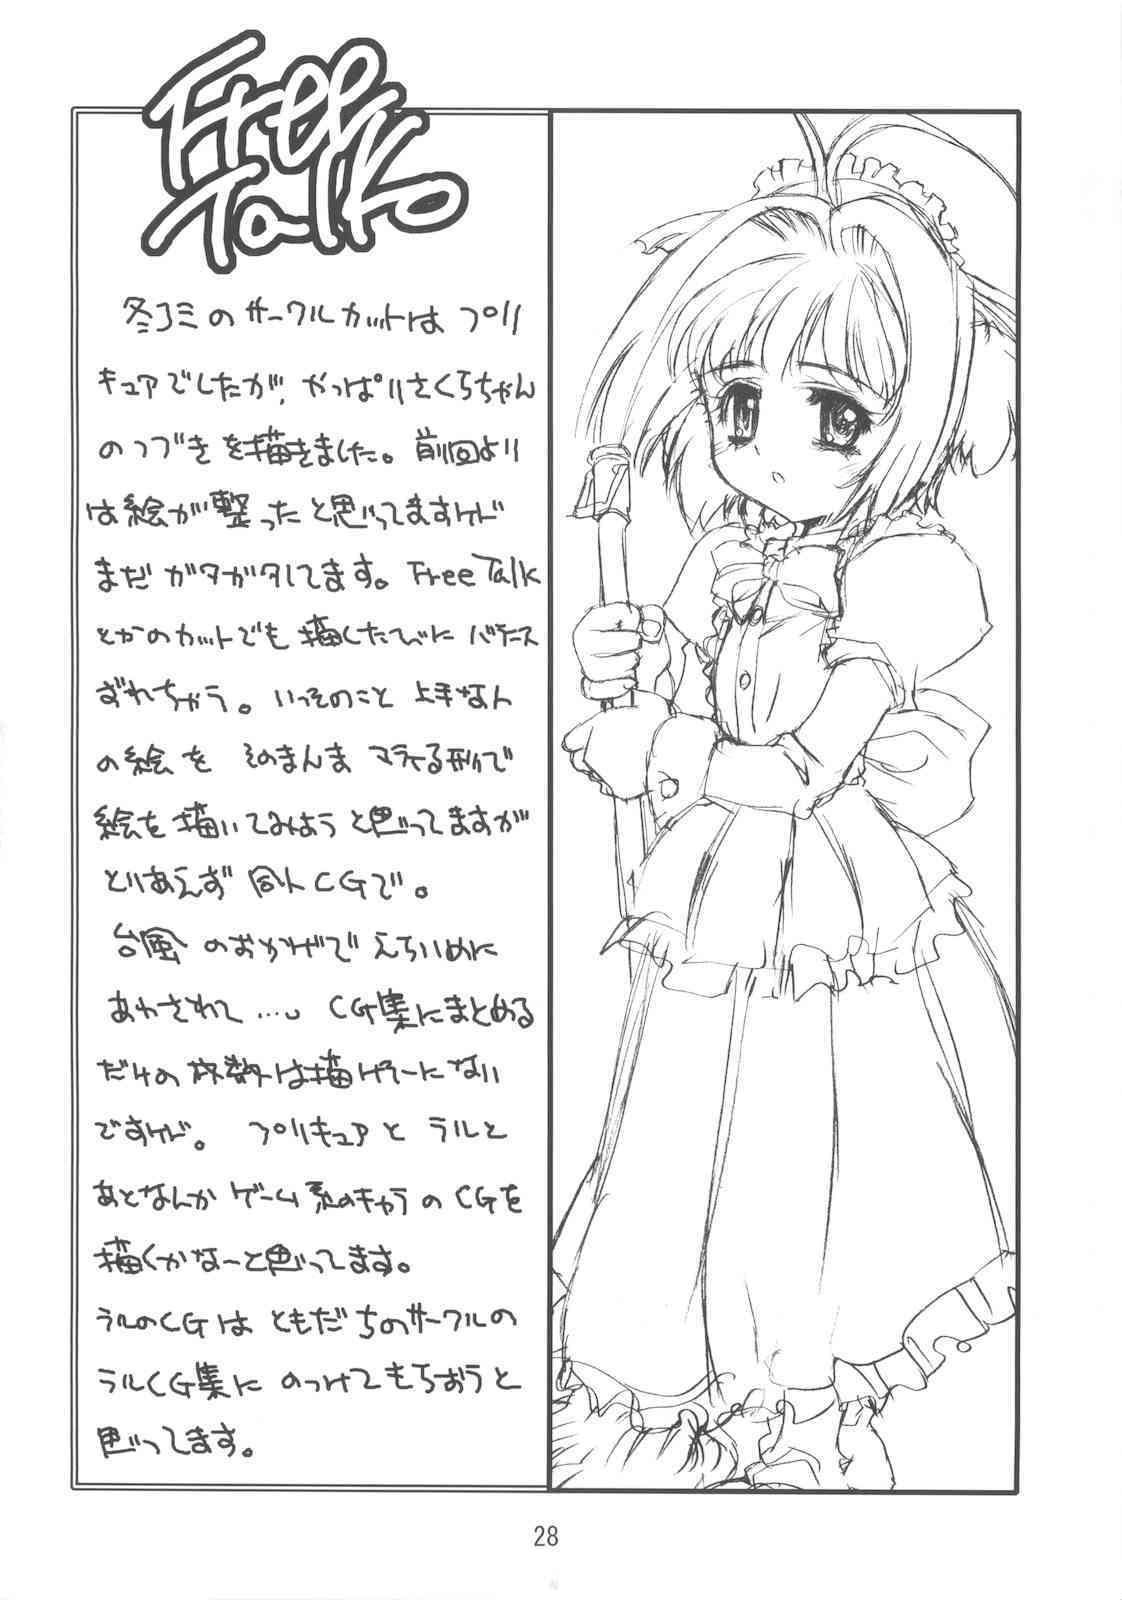 Free
Talk
冬コミのサークルカットは プリ
キュアでしたが、やっぱりさくらちゃん
のつづきを描きました。前回より
は絵が整ったと思ってますけど
まだガタガタしてます。Free Talk
とかのカットでも描くたびにバランス
ずれちゃう。いっそのこと上手な人
の絵を そのまんま マネる形で
絵を描いてみようと思ってますが
とりあえず 同人CGで。
台風のおかげで えらいめに
あわされて…。CG集にまとめる
だけの枚数は描けそーにない
ですけど。プリキュアと ラルと
あとなんか ゲーム系のキャラのCGを
描くかなーと思ってます。
ラルのCGは ともだちのサークルの
ラルCG集に のっけてもらおうと
思ってます。
28